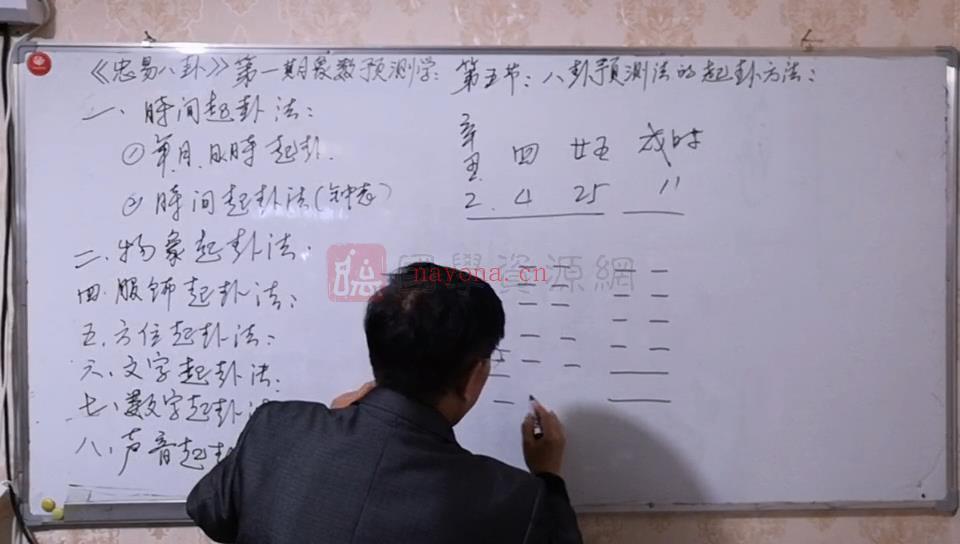 《忠易八卦》第一期象数预测学: 第五节:八卦预测法的起卦方法:
一、時间起卦法:
①年月日時起卦.
②時间起卦法(钟表)
二.物象起卦法:
四.服饰起卦法:
五.方位起卦法:
六、文字起卦法:
七、数字起卦法
八、声音起卦
辛丑 四 廿五 戌时
2. 4 25 11
國學資源網
nayona.cn